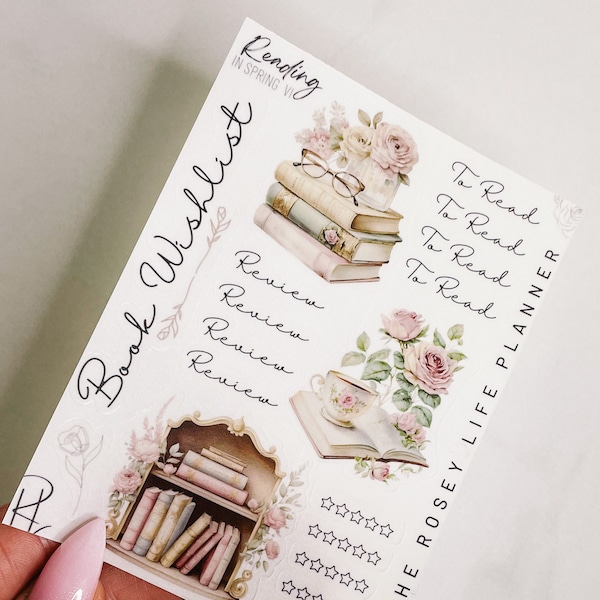 Reading
IN SPRING VI
Book Wishlist
To Read
To Read
To Read
To Read
Review
Review
Review
Review
HE ROSEY LIFE PLANNER